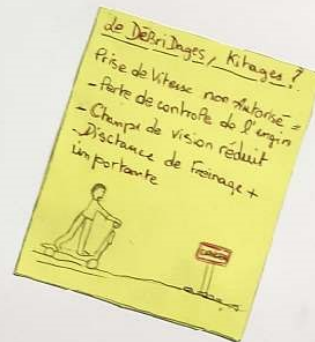 Le DéBriDages, Kitages ?
Prise de Vitesse non Autorisé =
- Perte de controle de l'engin
- Champs de vision réduit
- Disctance de Freinage +
importante
DANGER